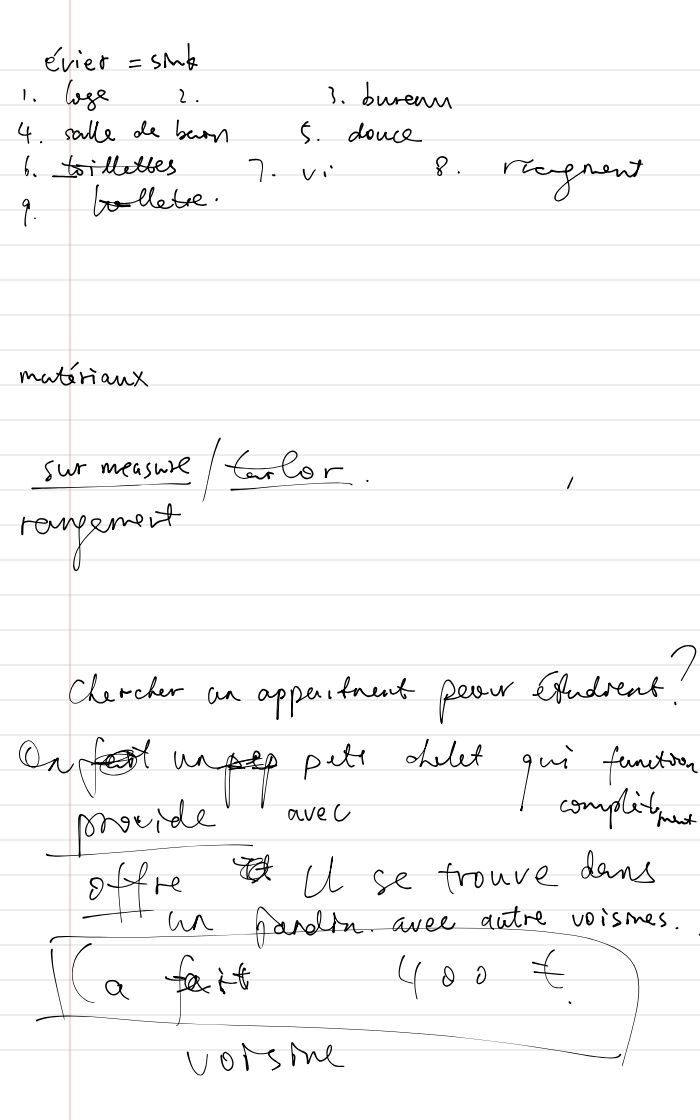 évier = sink
1. loge 2. 3. bureau
4. salle de bain 5. douce
6. toillettes 7. vi 8. ricagment
9. tollette.
matériaux
sur measure / tailor.
rangement
Chercher un appartment pour Étudient?
On un petit chalet qui function
provide avec complètment
offre Il se trouve dans
un jardin. avec autre voisines.
Ca fait 400 €.
voisine